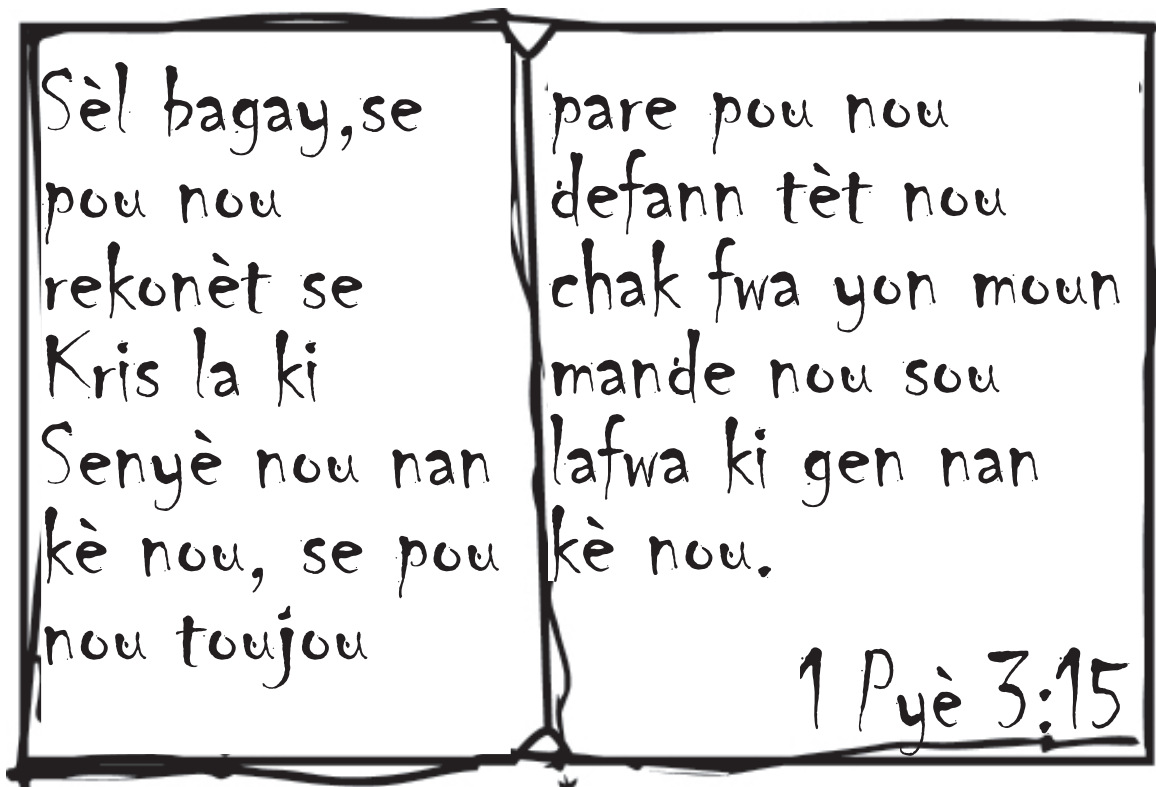 Sèl bagay,se
pou nou
rekonèt se
Kris la ki
Senyè nou nan
kè nou, se pou
nou toujou
pare pou nou
defann tèt nou
chak fwa yon moun
mande nou sou
lafwa ki gen nan
kè nou.
1 Pyè 3:15